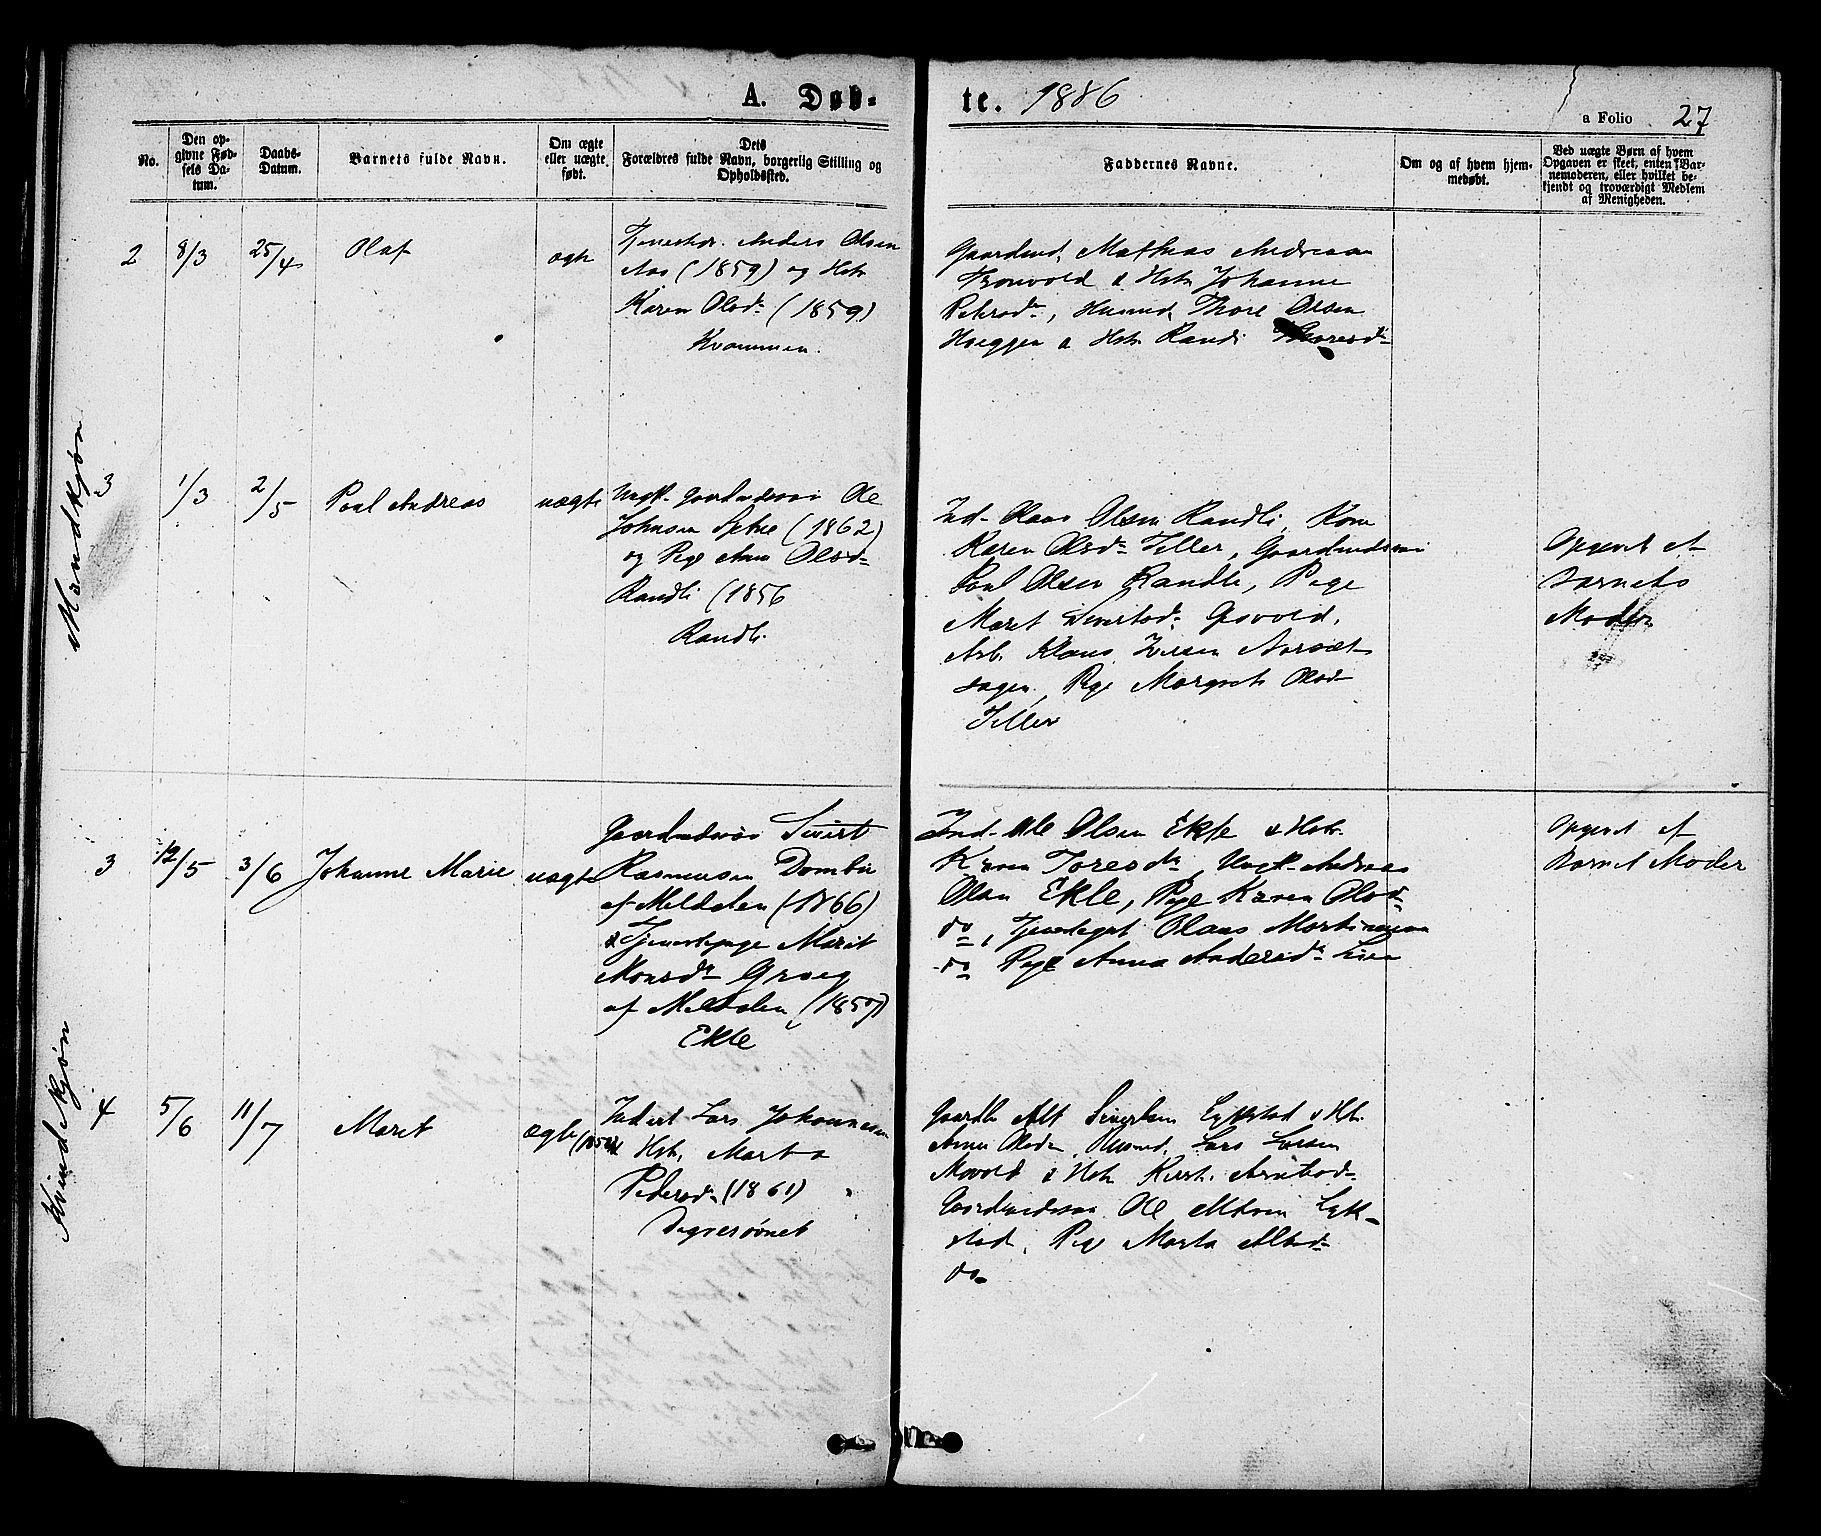 A. Døb-
te. 1886
a Folio 27
No.
Den op-
givne Fød-
sels Da-
tum.
Daabs-
Datum.
Barnets fulde Navn.
Om ægte
eller uægte
født.
Dets
Forældres fulde Navn, borgerlig Stilling og
Opholdssted.
Faddernes Navne.
Om og af hvem hjem-
medøbt.
Ved uægte Børn af hvem
Opgaven er skeet, enten Bar-
nemoderen, eller hvilket be-
kjendt og troværdigt Medlem
af Menigheden.
Mandkjøn
2
8/3
25/4
Olaf
ægte
Anders Olsen
Aas (1859) og Hstr.
Karen Olsdr (1859)
Kvammen.
Gaardmd. Mathias Andreasen
Tronvold & Hstr Johanne
Petersdr, Husmd. Thore Olsen
Hoeggen & Hstr Randi Thoresdr
3
1/3
2/5
Paul Andreas
uægte
Ungk. Gaardmdssøn Ole
Johnsen (1862)
og Pige Ane Olsdr
Randli (1856
Randli.
Ind. Olaus Olsen Randli, Kone
Karen Olsdr Teller, Gaardmdssøn
Paul Olsen Randli, Pige
Maret Sivertsdr Gsvold,
Arb. Klaus Iversen Aarsæt-
hagen, Pige Margret Olsdr
Teller
Opgivet af
Barnets
Moder
Kvindekjøn
3
12/5
3/6
Johanne Marie
uægte
Gaardmdssøn Sivert
Rasmussen Dombu
af Meldalen (1866)
& Tjenestepige Marit
Monsdr Groeg
af Meldalen (1857)
Ekle
Ind. Ole Olsen Ekle & Hstr.
Karen Toresdr, Ungk. Andreas
Olsen Ekle, Pige Karen Olsdr
do, Tjenestegut Olaus Martinusen
do Pige Anna Andersdr Lien
Opgivet af
Barnet Moder
4
5/6
11/7
Maret
ægte
Inderst Lars Johannesen
Hstr. Marta
Pedersdr (1861)
Digresøvnet
Sivertsen Lykkstad & Hstr.
Anne Olsdr, Husmd. Lars Larsen
Movold & Hstr Kirsti Arntsdr
Gaardmdssøn Ole Lykk-
stad, Pige Marta
do